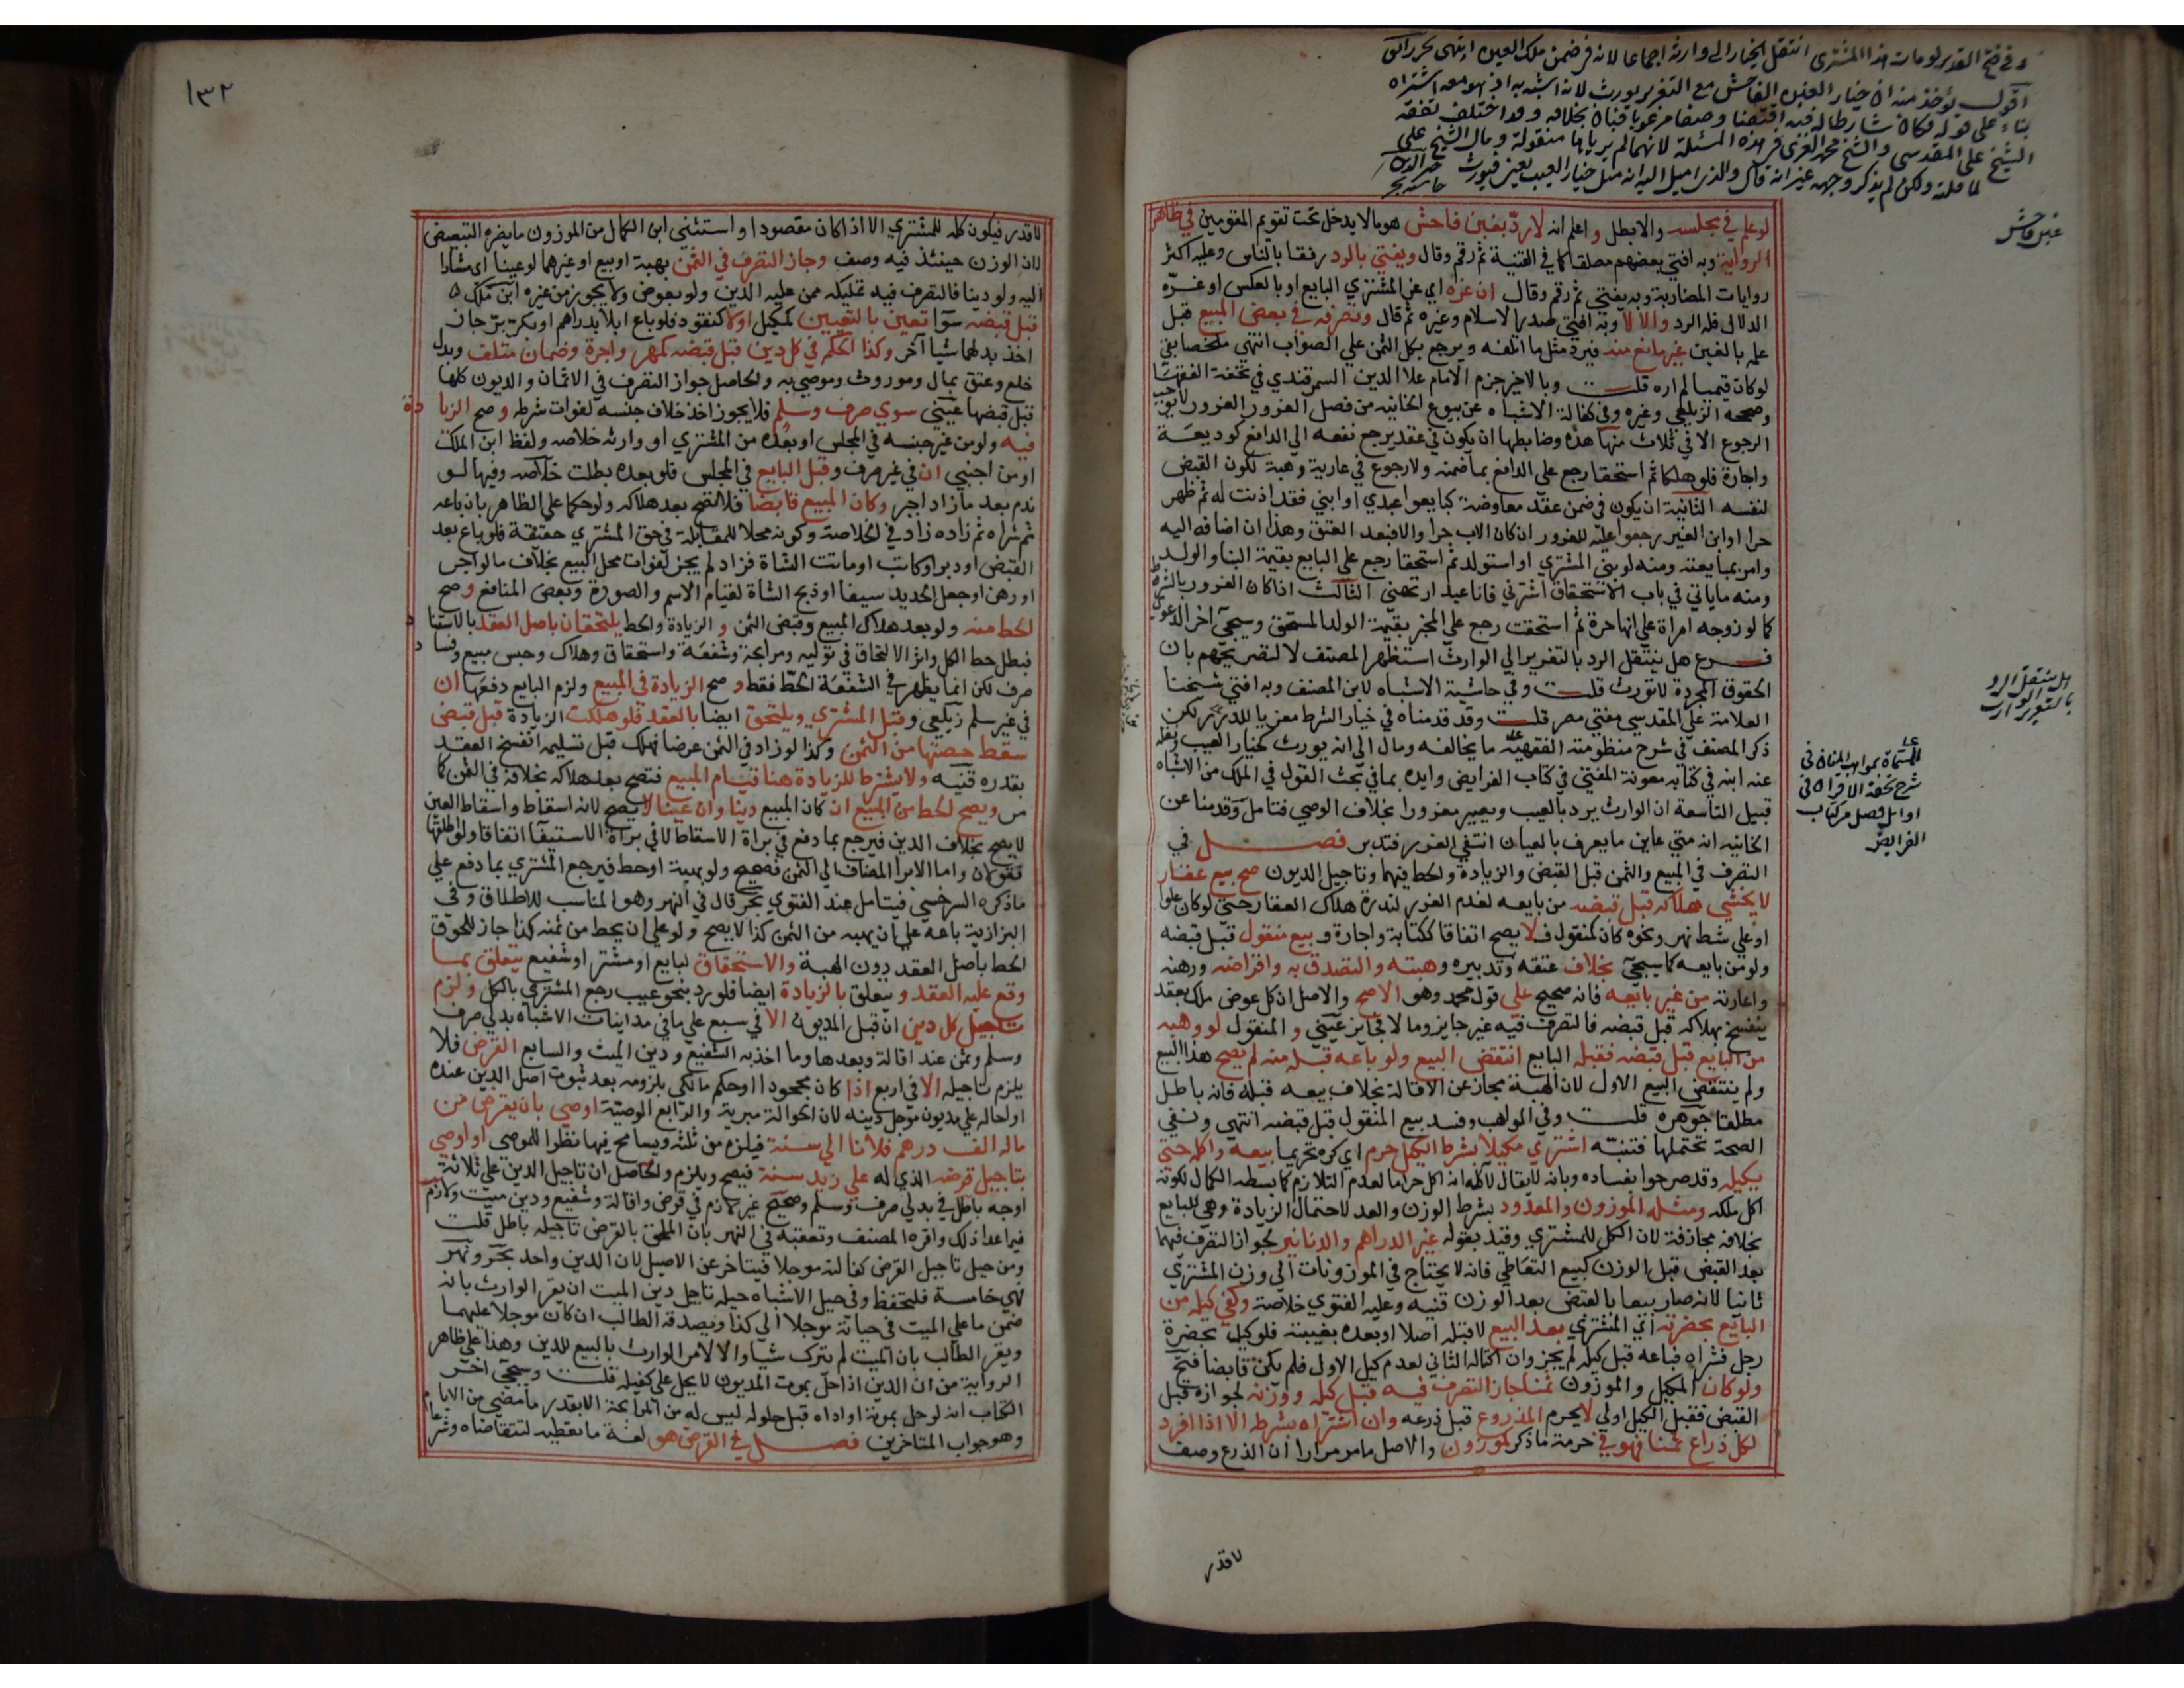 وفي فتح القدير لو مات هذا المشتري انتقل الخيار الى وارثه اجماعا لانه في ضمن ملك العين انتهى
اقول يؤخذ منه ان خيار الغبن الفاحش مع التغرير يورث لانه اشبه به اذ هو معه اشتراه
بناء على قوله فكان شارطا له فيه اقتضا وصفا مرغوبا فبان بخلافه وقد اختلف تفقه
الشيخ على المقدسي والشيخ محمد الغزي في هذه المسئلة لانهما لم يرياها منقولة ومال الشيخ على
لما قلته ولكن لم يذكر وجهه غير انه قال والذي اميل اليه انه مثل خيار العيب يعني فيورث
غبن فاحش
لو علم في مجلسه والا بطل واعلم انه لا رد بغبن فاحش هو مالا يدخل تحت تقويم المقومين في ظاهر
الرواية وبه افتى بعضهم مطلقا كما في القنية ثم رقم وقال ويفتي بالرد رفقا بالناس وعليه اكثر
روايات المضاربة وبه يفتي ثم رقم وقال ان غره اي غر المشتري البايع او بالعكس او غره
الدلال فله الرد والا لا وبه افتي صدر الاسلام وغيره ثم قال وتصرفه في بعض المبيع قبل
علمه بالغبن غير مانع منه فيرد مثل ما اتلفه ويرجع بكل الثمن علي الصواب انتهي ملخصا بقي
لو كان قيميا لم اره قلت وبالاخير جزم الامام علا الدين السمرقندي في تحفة الفقها
وصححه الزيلعي وغيره وفي كفالة الاشباه عن بيوع الخانية من فصل الغرور الغرور لا يوجب
الرجوع الا في ثلاث منها هذه وضابطها ان يكون في عقد يرجع نفعه الي الدافع كوديعة
واجارة فلو هلكا ثم استحقا رجع علي الدافع بما ضمنه ولا رجوع في عارية وهبة لكون القبض
لنفسه الثانية ان يكون في ضمن عقد معاوضة كبايعوا عبدي او ابني فقد اذنت له ثم ظهر
حرا او ابن الغير رجعوا عليه للغرور ان كان الاب حرا والا فبعد العتق وهذا ان اضافه اليه
وامر بمبايعته ومنه لو بني المشتري او استولد ثم استحقا رجع علي البايع بقيمة البنا والولد
ومنه ما ياتي في باب الاستحقاق اشترني فانا عبد ارتهني الثالث اذا كان الغرور بالشرط
كما لو زوجه امراة علي انها حرة ثم استحقت رجع علي المخبر بقيمة الولد المستحق وسيجي اخر الدعوي
فرع هل ينتقل الرد بالتغرير الي الوارث استظهر المصنف لا لتصريحهم بان
الحقوق المجردة لا تورث قلت وفي حاشية الاشباه لابن المصنف وبه افتي شيخنا
العلامة علي المقدسي مفتي مصر قلت وقد قدمناه في خيار الشرط معزيا للدرر لكن
ذكر المصنف في شرح منظومته الفقهية ما يخالفه ومال الي انه يورث كخيار العيب ونقله
عنه ابنه في كتابه معونة المفتي في كتاب الفرايض وايده بما في بحث القول في الملك من الاشباه
قبيل التاسعة ان الوارث يرد بالعيب ويصير مغرورا بخلاف الوصي فتامل وقدمنا عن
الخانية انه متي عاين ما يعرف بالعيان انتفي الغرر فتدبر فصل في
التصرف في المبيع والثمن قبل القبض والزيادة والحط فيهما وتاجيل الديون صح بيع عقار
لا يخشي هلاكه قبل قبضه من بايعه لعدم الغرر لندرة هلاك العقار حتي لو كان علوا
او علي شط نهر ونحوه كان كمنقول ف لا يصح اتفاقا ككتابة واجارة و بيع منقول قبل قبضه
ولو من بايعه كما سيجي بخلاف عتقه وتدبيره وهبته والتصدق به واقراضه ورهنه
واعارته من غير بايعه فانه صحيح علي قول محمد وهو الاصح والاصل ان كل عوض ملك بعقد
ينفسخ بهلاكه قبل قبضه فالتصرف فيه غير جايز وما لا فجايز عيني و المنقول لو وهبه
من البايع قبل قبضه فقبله البايع انتقض البيع ولو باعه قبله منه لم يصح هذا البيع
ولم ينتقض البيع الاول لان الهبة مجاز عن الاقالة بخلاف بيعه قبله فانه باطل
مطلقا جوهره قلت وفي المواهب وفسد بيع المنقول قبل قبضه انتهي ونفي
الصحة تحتملها فتنبه اشتري مكيلا بشرط الكيل حرم اي كره تحريما بيعه واكله حتي
يكيله وقد صرحوا بفساده وبانه لا يقال لآكله انه اكل حراما لعدم التلازم كما بسطه الكمال لكونه
اكل ملكه ومثله الموزون والمعدود بشرط الوزن والعد لاحتمال الزيادة وهي للبايع
بخلافه مجازفة لان الكل للمشتري وقيد بقوله غير الدراهم والدنانير لجواز التصرف فيهما
بعد القبض قبل الوزن كبيع التعاطي فانه لا يحتاج في الموزونات الي وزن المشتري
ثانيا لانه صار بيعا بالقبض بعد الوزن قنيه وعليه الفتوي خلاصة وكفي كيله من
البايع بحضرته اي المشتري بعد البيع لا قبله اصلا او بعده بغيبته فلو كيل بحضرة
رجل فشراه فباعه قبل كيله لم يجز وان اكتاله الثاني لعدم كيل الاول فلم يكن قابضا فتح
ولو كان المكيل والموزون ثمنا جاز التصرف فيه قبل كيله ووزنه لجوازه قبل
القبض فقبل الكيل اولي لا يحرم المذروع قبل ذرعه وان اشتراه بشرطه الا اذا افرد
لكل ذراع ثمنا فهو في حرمة ما ذكر كموزون والاصل ما مر مرارا ان الذرع وصف
هل ينتقل الرد
بالتغرير الى الوارث
المسماة بمواهب المنان في
شرح تحفة الاقران في
اوايل فصل من كتاب
الفرايض
لا قدر
١٣٢
لا قدر فيكون كله للمشتري الا اذا كان مقصودا واستثني ابن الكمال من الموزون ما يضره التبعيض
لان الوزن حينئذ فيه وصف وجاز التصرف في الثمن بهبة او بيع او غيرهما لو عينا اي مشارا
اليه ولو دينا فالتصرف فيه تمليكه ممن عليه الدين ولو بعوض ولا يجوز من غيره ابن ملك
قبل قبضه سوا تعين بالتعيين كمكيل او لا كنقود فلو باع ابلا بدراهم او بكر بر جاز
اخذ بدلهما شيا آخر وكذا الحكم في كل دين قبل قبضه كمهر واجرة وضمان متلف وبدل
خلع وعتق بمال وموروث وموصي به والحاصل جواز التصرف في الاثمان والديون كلها
قبل قبضها عيني سوي صرف وسلم فلا يجوز اخذ خلاف جنسه لفوات شرطه و صح الزيادة
فيه ولو من غير جنسه في المجلس او بعده من المشتري او وارثه خلاصه ولفظ ابن الملك
او من اجنبي ان في غير صرف وقبل البايع في المجلس فلو بعده بطلت خلاصه وفيها لو
ندم بعد ما زاد اجبر وكان المبيع قايما فلا تصح بعد هلاكه ولو حكما علي الظاهر بان باعه
ثم شراه ثم زاده زاد في الخلاصة وكونه محلا للمقابلة في حق المشتري حقيقة فلو باع بعد
القبض او دبر او كاتب او ماتت الشاة فزاد لم يجز لفوات محل البيع بخلاف ما لو اجر
او رهن او جعل الحديد سيفا او ذبح الشاة لقيام الاسم والصورة وبعض المنافع و صح
الحط منه ولو بعد هلاك المبيع وقبض الثمن و الزيادة والحط يلتحقان باصل العقد بالاستناد
فبطل حط الكل واثر الالتحاق في توليه ومرابحة وشفعة واستحقاق وهلاك وحبس مبيع وفساد
صرف لكن انما يظهر في الشفعة الحط فقط و صح الزيادة في المبيع ولزم البايع دفعها ان
في غير سلم زيلعي وقبل المشتري ويلتحق ايضا بالعقد فلو هلكت الزيادة قبل قبض
سقط حصتها من الثمن وكذا لو زاد في الثمن عرضا فهلك قبل تسليمه انفسخ العقد
بقدره قنيه ولا يشترط للزيادة هنا قيام المبيع فتصح بعد هلاكه بخلافه في الثمن كما
مر ويصح الحط من المبيع ان كان المبيع دينا وان عينا لا يصح لانه اسقاط واسقاط العين
لا يصح بخلاف الدين فيرجع بما دفع في براة الاسقاط لا في براة الاستيفا اتفاقا ولو اطلقها
فقولان واما الابرا المضاف الي الثمن فصحيح ولو بهبة او حط فيرجع المشتري بما دفع علي
ما ذكره السرخسي فيتامل عند الفتوي بحر قال في النهر وهو المناسب للاطلاق وفي
البزازية باعه علي ان يهبه من الثمن كذا لا يصح ولو علي ان يحط من ثمنه كذا جاز للحوق
الحط باصل العقد دون الهبة والاستحقاق لبايع او مشتر او شفيع يتعلق بما
وقع عليه العقد و يتعلق بالزيادة ايضا فلو رد بنحو عيب رجع المشتري بالكل ولزم
تاجيل كل دين ان قبل المديون الا في سبع علي ما في مداينات الاشباه بدلي صرف
وسلم وثمن عند اقالة وبعدها وما اخذ به الشفيع ودين الميت والسابع القرض فلا
يلزم تاجيله الا في اربع اذا كان مجحودا او حكم مالكي بلزومه بعد ثبوت اصل الدين عنده
او احاله علي مديون موجل دينه لان الحوالة مبرية والرابع الوصية اوصي بان يقرض من
ماله الف درهم فلانا الي سنة فيلزم من ثلثه ويسامح فيها نظرا للموصي او اوصي
بتاجيل قرضه الذي له علي زيد سنة فيصح ويلزم والحاصل ان تاجيل الدين علي ثلاثة
اوجه باطل في بدلي صرف وسلم وصحيح غير لازم في قرض واقالة وشفيع ودين ميت ولازم
فيما عدا ذلك واقره المصنف وتعقبه في النهر بان الملحق بالقرض تاجيله باطل قلت
ومن حيل تاجيل القرض كفالته موجلا فيتاخر عن الاصيل لان الدين واحد بحر ونهر
فهي خامسة فلتحفظ وفي حيل الاشباه حيلة تاجيل دين الميت ان يقر الوارث بانه
ضمن ما علي الميت في حياته موجلا الي كذا ويصدقه الطالب ان كان موجلا عليهما
ويقر الطالب بان الميت لم يترك شيا والا لامر الوارث بالبيع للدين وهذا علي ظاهر
الرواية من ان الدين اذا حل بموت المديون لا يحل علي كفيله قلت وسيجي اخر
الكتاب انه لو حل بموته او اداه قبل حلوله ليس له من المرابحة الا بقدر ما مضي من الايام
وهو جواب المتاخرين فصل في القرض هو لغة ما تعطيه لتتقاضاه وشرعا